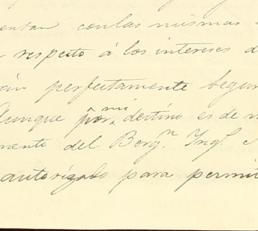 entan con las mismas
respecto á los intereses d
án perfectamente segur
Aunque por mi destino es de n
mento del Berg.n Ingl.
autorizado para permi